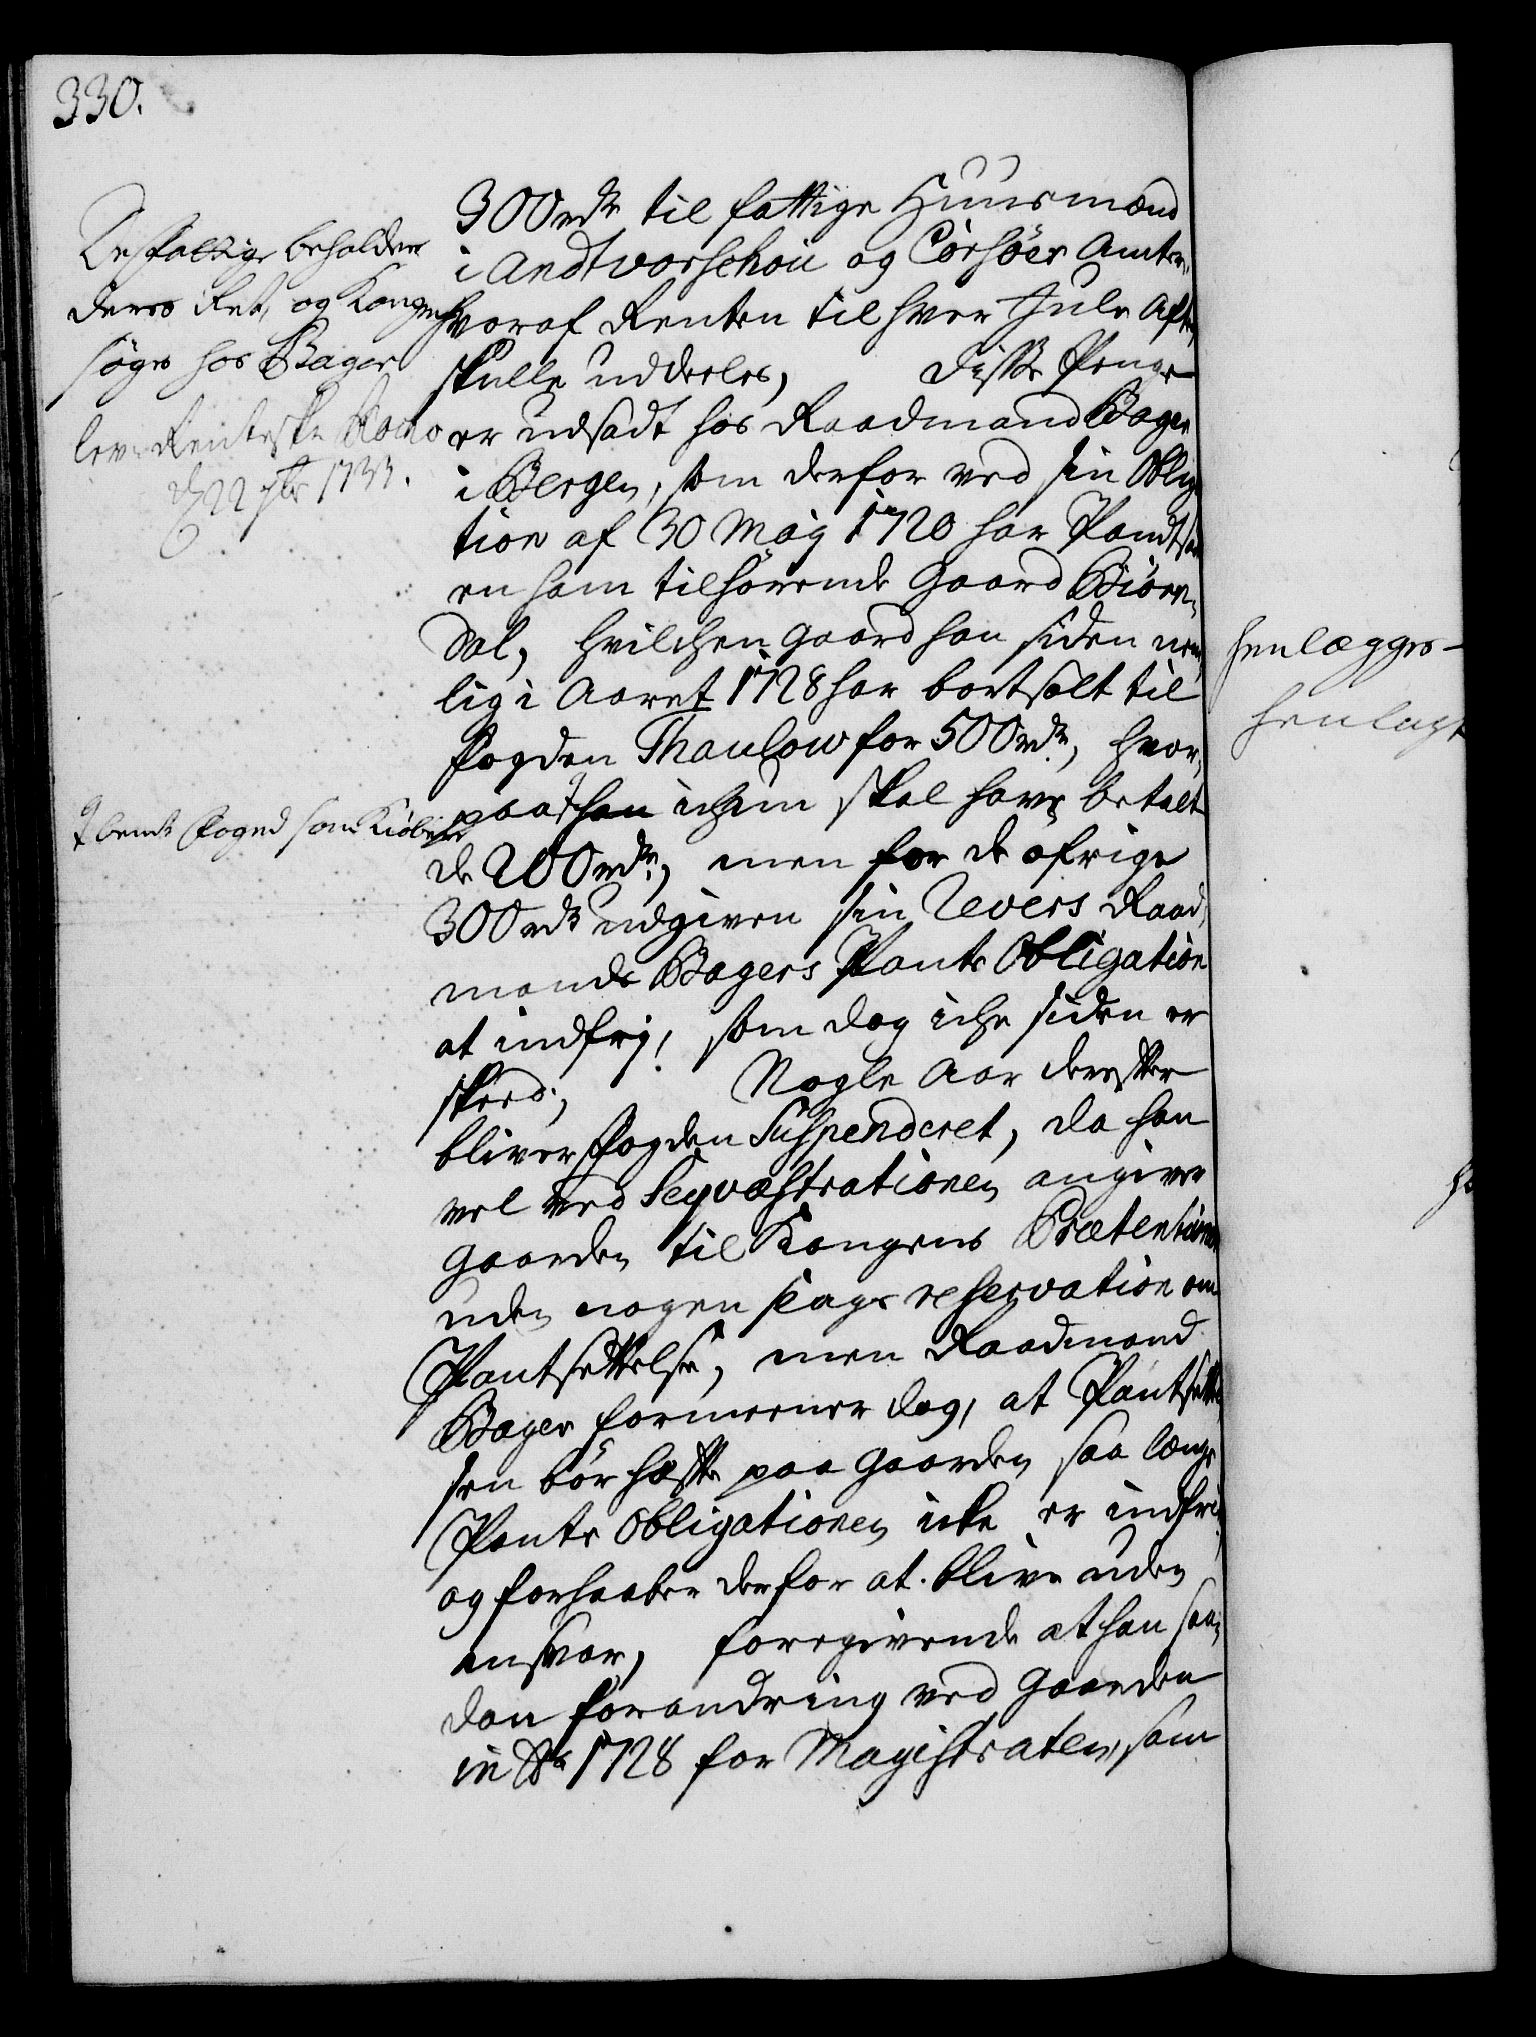 330.
De fattige beholder
deres Ret, og Kongen
søges hos Bager
22 7br 1733.
300 rdr til fattige Huusmænd
i Andtvorschou og Corsöer Amter,
hvoraf Renten til hver Jule Aften
skulle uddeeles, disse Penge
er udsadt hos Raadmand Bager
i Bergen, som derfor ved sin Obliga
tion af 30 Maÿ 1720 har Pandtsat
en ham tilhørende Gaard Biørn,
dal, hvilchen Gaard han siden nem,
lig i Aaret 1728 har bortsolt til
Fogden Thaulow for 500 rdr, hvor,
paa han ijchun skal have betalt
bemte Foged som Kiøber
de 200 rdr, men for de øfrige
300 rdr udgiven sin Revers Raad,
mands Bagers Pante Obligation
at indfrj, som dog iche siden er
skeed; Nogle Aar derefter
bliver Fogden Suspenderet, da han
vel ved Seqvæstrationen angiver
Gaarden til Kongens Prætention
uden nogen slags reservation om
Pantsettelse, men Raadmand
Bager formeener dog, at Pantsettel
sen bør hæfte paa Gaarden saa længe
Pante Obligationen icke er indfriet,
og forhaaber derfor at blive uden
ansvar, foregivende at han saa,
dan forandring ved Gaarden
in Ao 1728 for Magistraten, som
henlægges
henlagt